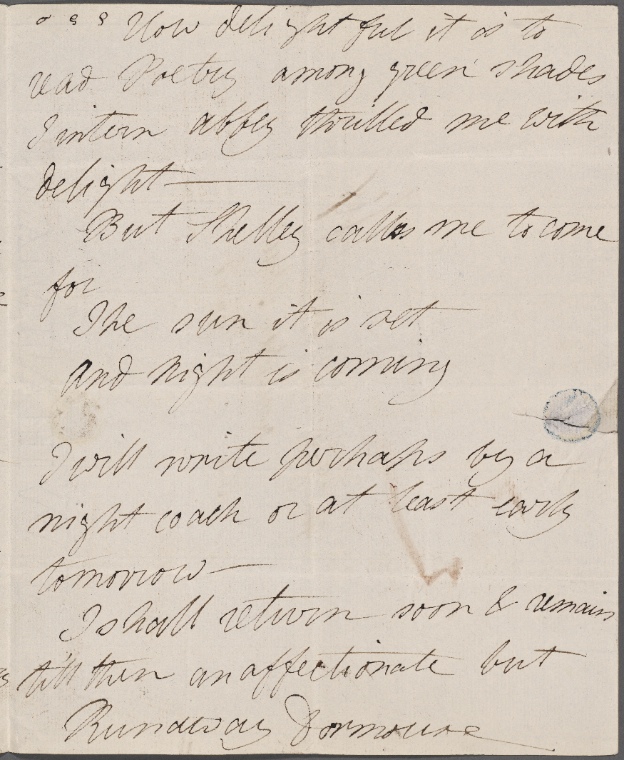 ° ° ° How delightful it is to
read Poetry among green shades
Tintern abbey thrilled me with
delight —
But Shelley calls me to come
for
The sun it is set
and night is coming
I will write perhaps by a
night coach or at least early
tomorrow —
I shall return soon & remain
till then an affectionate but
Runaway Dormouse